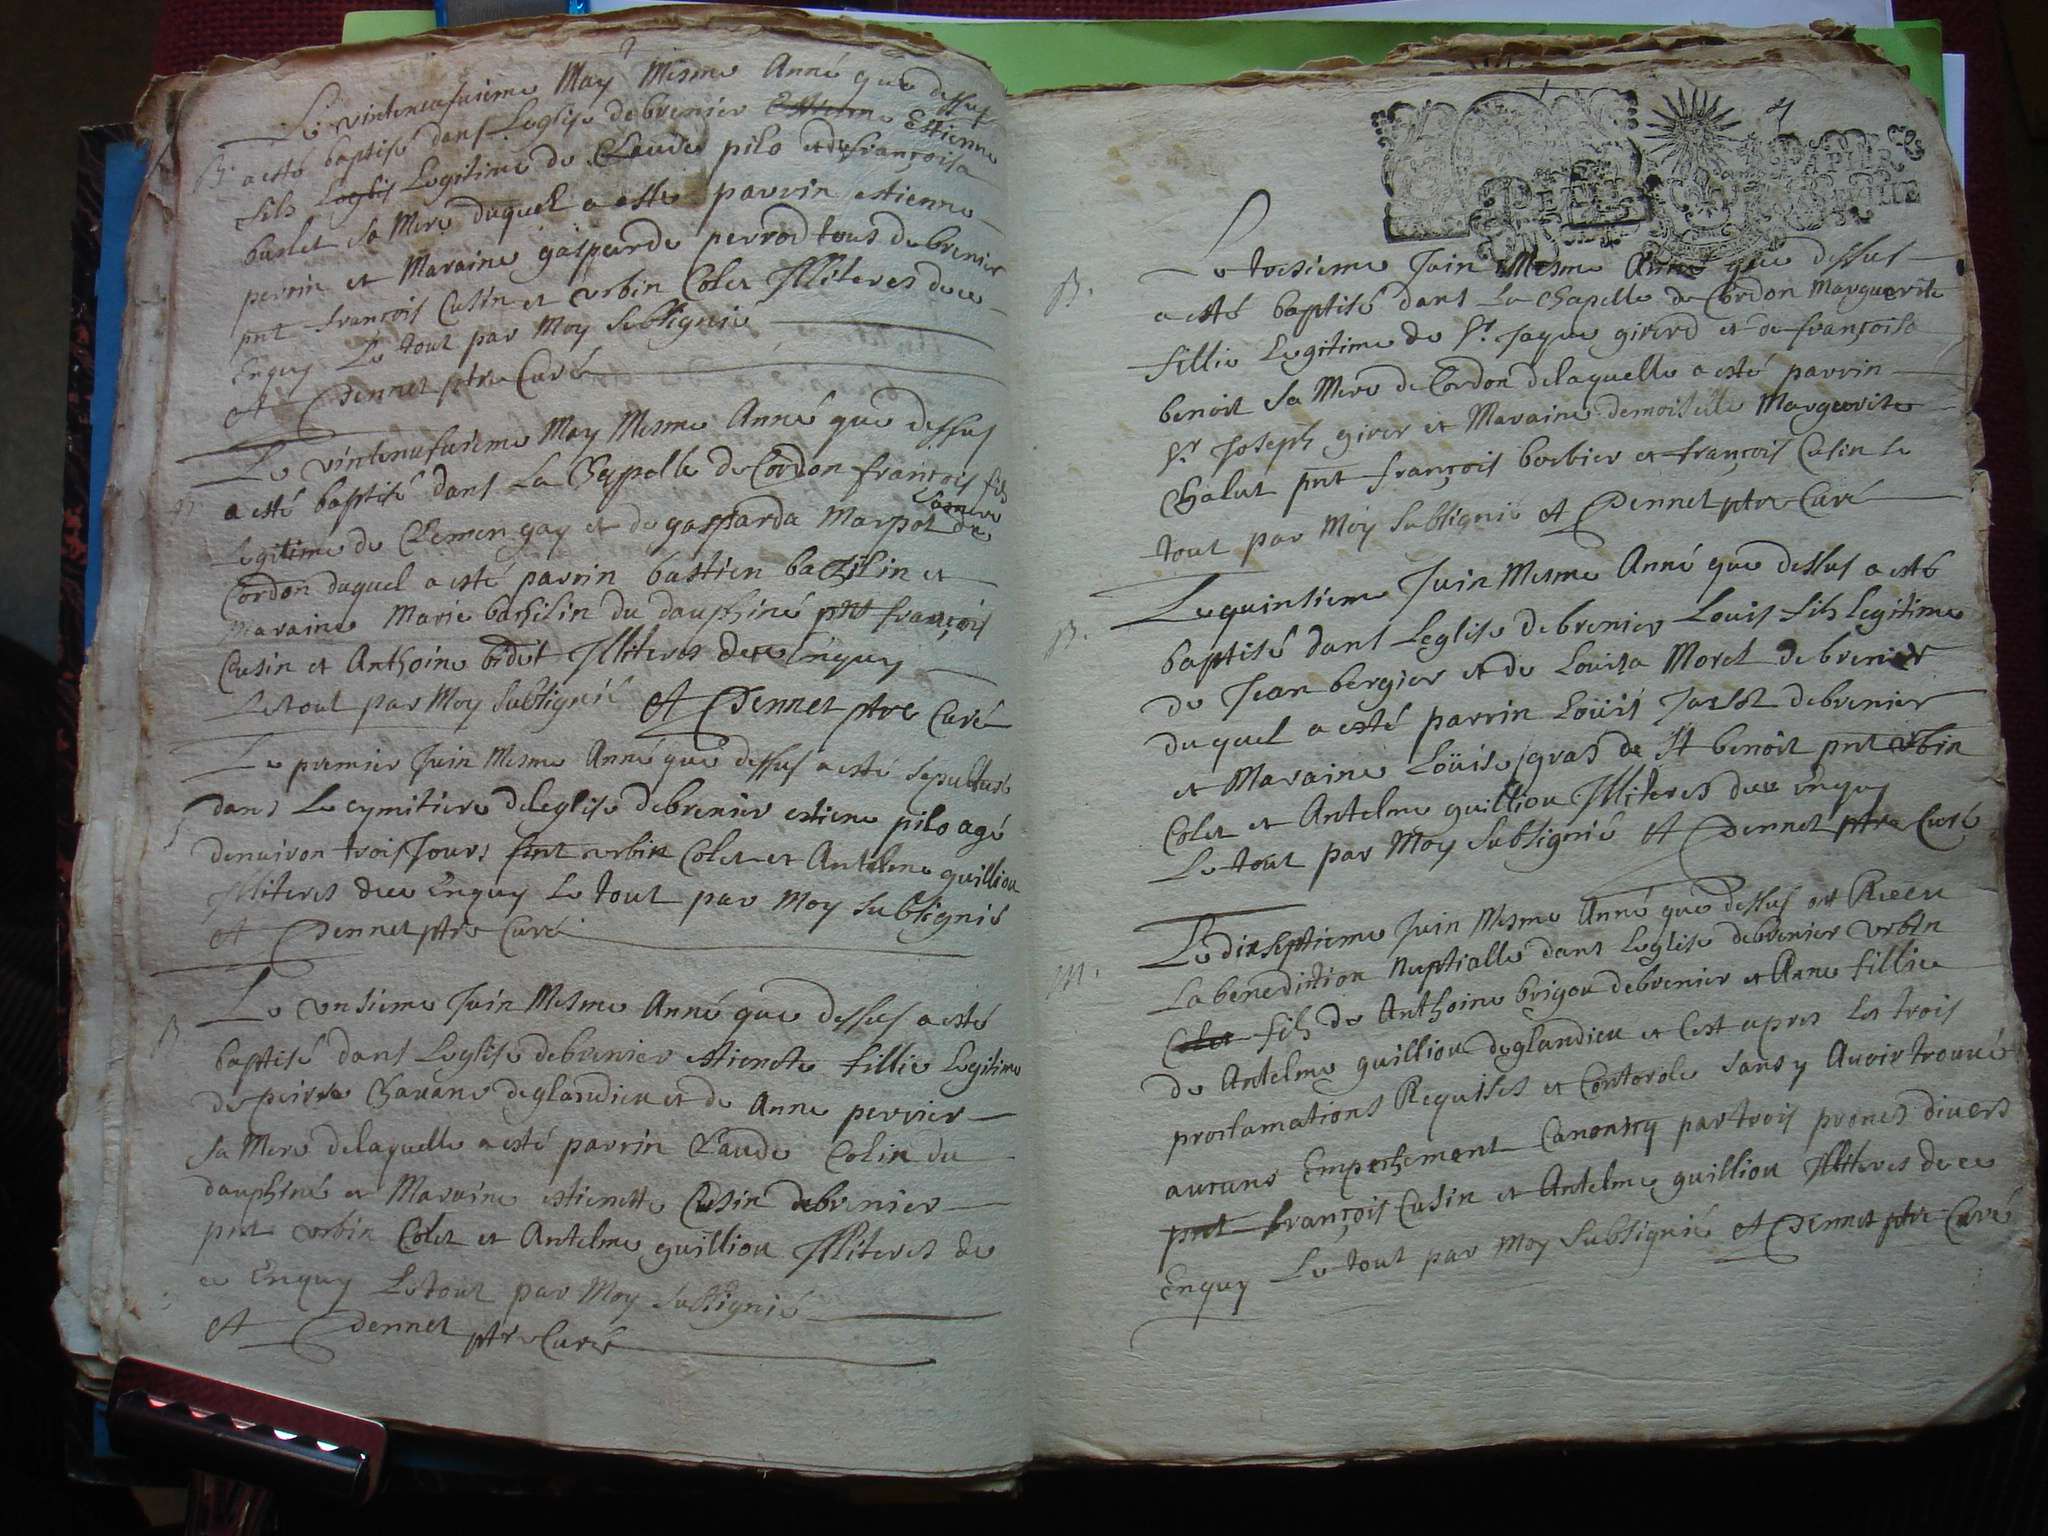 Le vinteneufuieme May Mesme Anné que dessus
B. a esté baptisé dans Leglise debrenier Estienne Estienne
fils Legitime de Claude pilo et de françoisa
burlet sa Mere duquel a esté parrin estienne
perrin et Maraine gasparde perrod tous de brenier
pnt françois Cusin et vrbin Colet Illiteres de ce
Enquy Le tout par Moy Subsignié
A Dennet ptre Curé
Le vintenufuieme May Mesme Anné que dessus
B. a esté baptisé dans La Chappelle de Cordon françois fils
Legitime de Clemen gay et de gasparda Marpot sa mere de
Cordon duquel a esté parrin bastien bazilin et
Maraine Marie bazilin du dauphiné pnt françois
Cusin et Anthoine bidet Illiteres de ce Enquy
Le tout par Moy Subsignié A Dennet ptre Curé
Le premier Juin Mesme Anné que dessus a esté sepulturé
S dans Le cymitiere deleglise debrenier estiene pilo agé
denuiron trois Jours pnt vrbin Colet et Antelme guilliou
Illiteres de ce Enquy Le tout par Moy Subsignié
A Dennet ptre Curé
B. Le vnsieme Juin Mesme Anné que dessus a esté
baptisé dans Leglise debrenier estienete fillie Legitime
de peirre Chauane deglandieu et de Anne perrier
sa Mere delaquelle a esté parrin Claude Colin du
dauphiné et Maraine estienette Cusin debrenier
pnt vrbin Colet et Antelme guilliou Illiteres de
ce Enquy Le tout par Moy Subsignié
A Dennet ptre Curé
4
PAPIER
Le tresieme Juin Mesme Anné que dessus
B. a esté baptisé dans La Chapelle de Cordon Marguerite
fillie Legitime de Sr. Jaque girerd et de françoisa
benoit sa Mere de Cordon delaquelle a esté parrin
Sr. Joseph girer et Maraine demoiselle Marguerite
Chalut pnt françois borbier et françois Cusin Le
tout par Moy Subsignié A Dennet ptre Curé
Le quinsieme Juin Mesme Anné que dessus a esté
B. baptisé dans Leglise debrenier Louis fils legitime
de Jean bergier et de Louisa Morel debrenier
duquel a esté parrin Loüis debrenier
et Maraine Loüise gras de St benoit pnt vrbin
Colet et Antelme guilliou Illiteres de ce Enquy
Le tout par Moy Subsignié A Dennet ptre Curé
Le dixseptieme Juin Mesme Anné que dessus ont Receu
M. La benediction Nuptialle dans Leglise debrenier vrbin
Colet fils de Anthoine brigou debrenier et Anne fillie
de Antelme guilliou deglandieu et Cest apres Les trois
proclamations Requises et Contorole sans y Auoir trouué
aucuns Empechement Canonicq par trois prones diuers
pnt françois Cusin et Antelme guilliou Illiteres de ce
Enquy Le tout par Moy Subsignié A Dennet ptre Curé